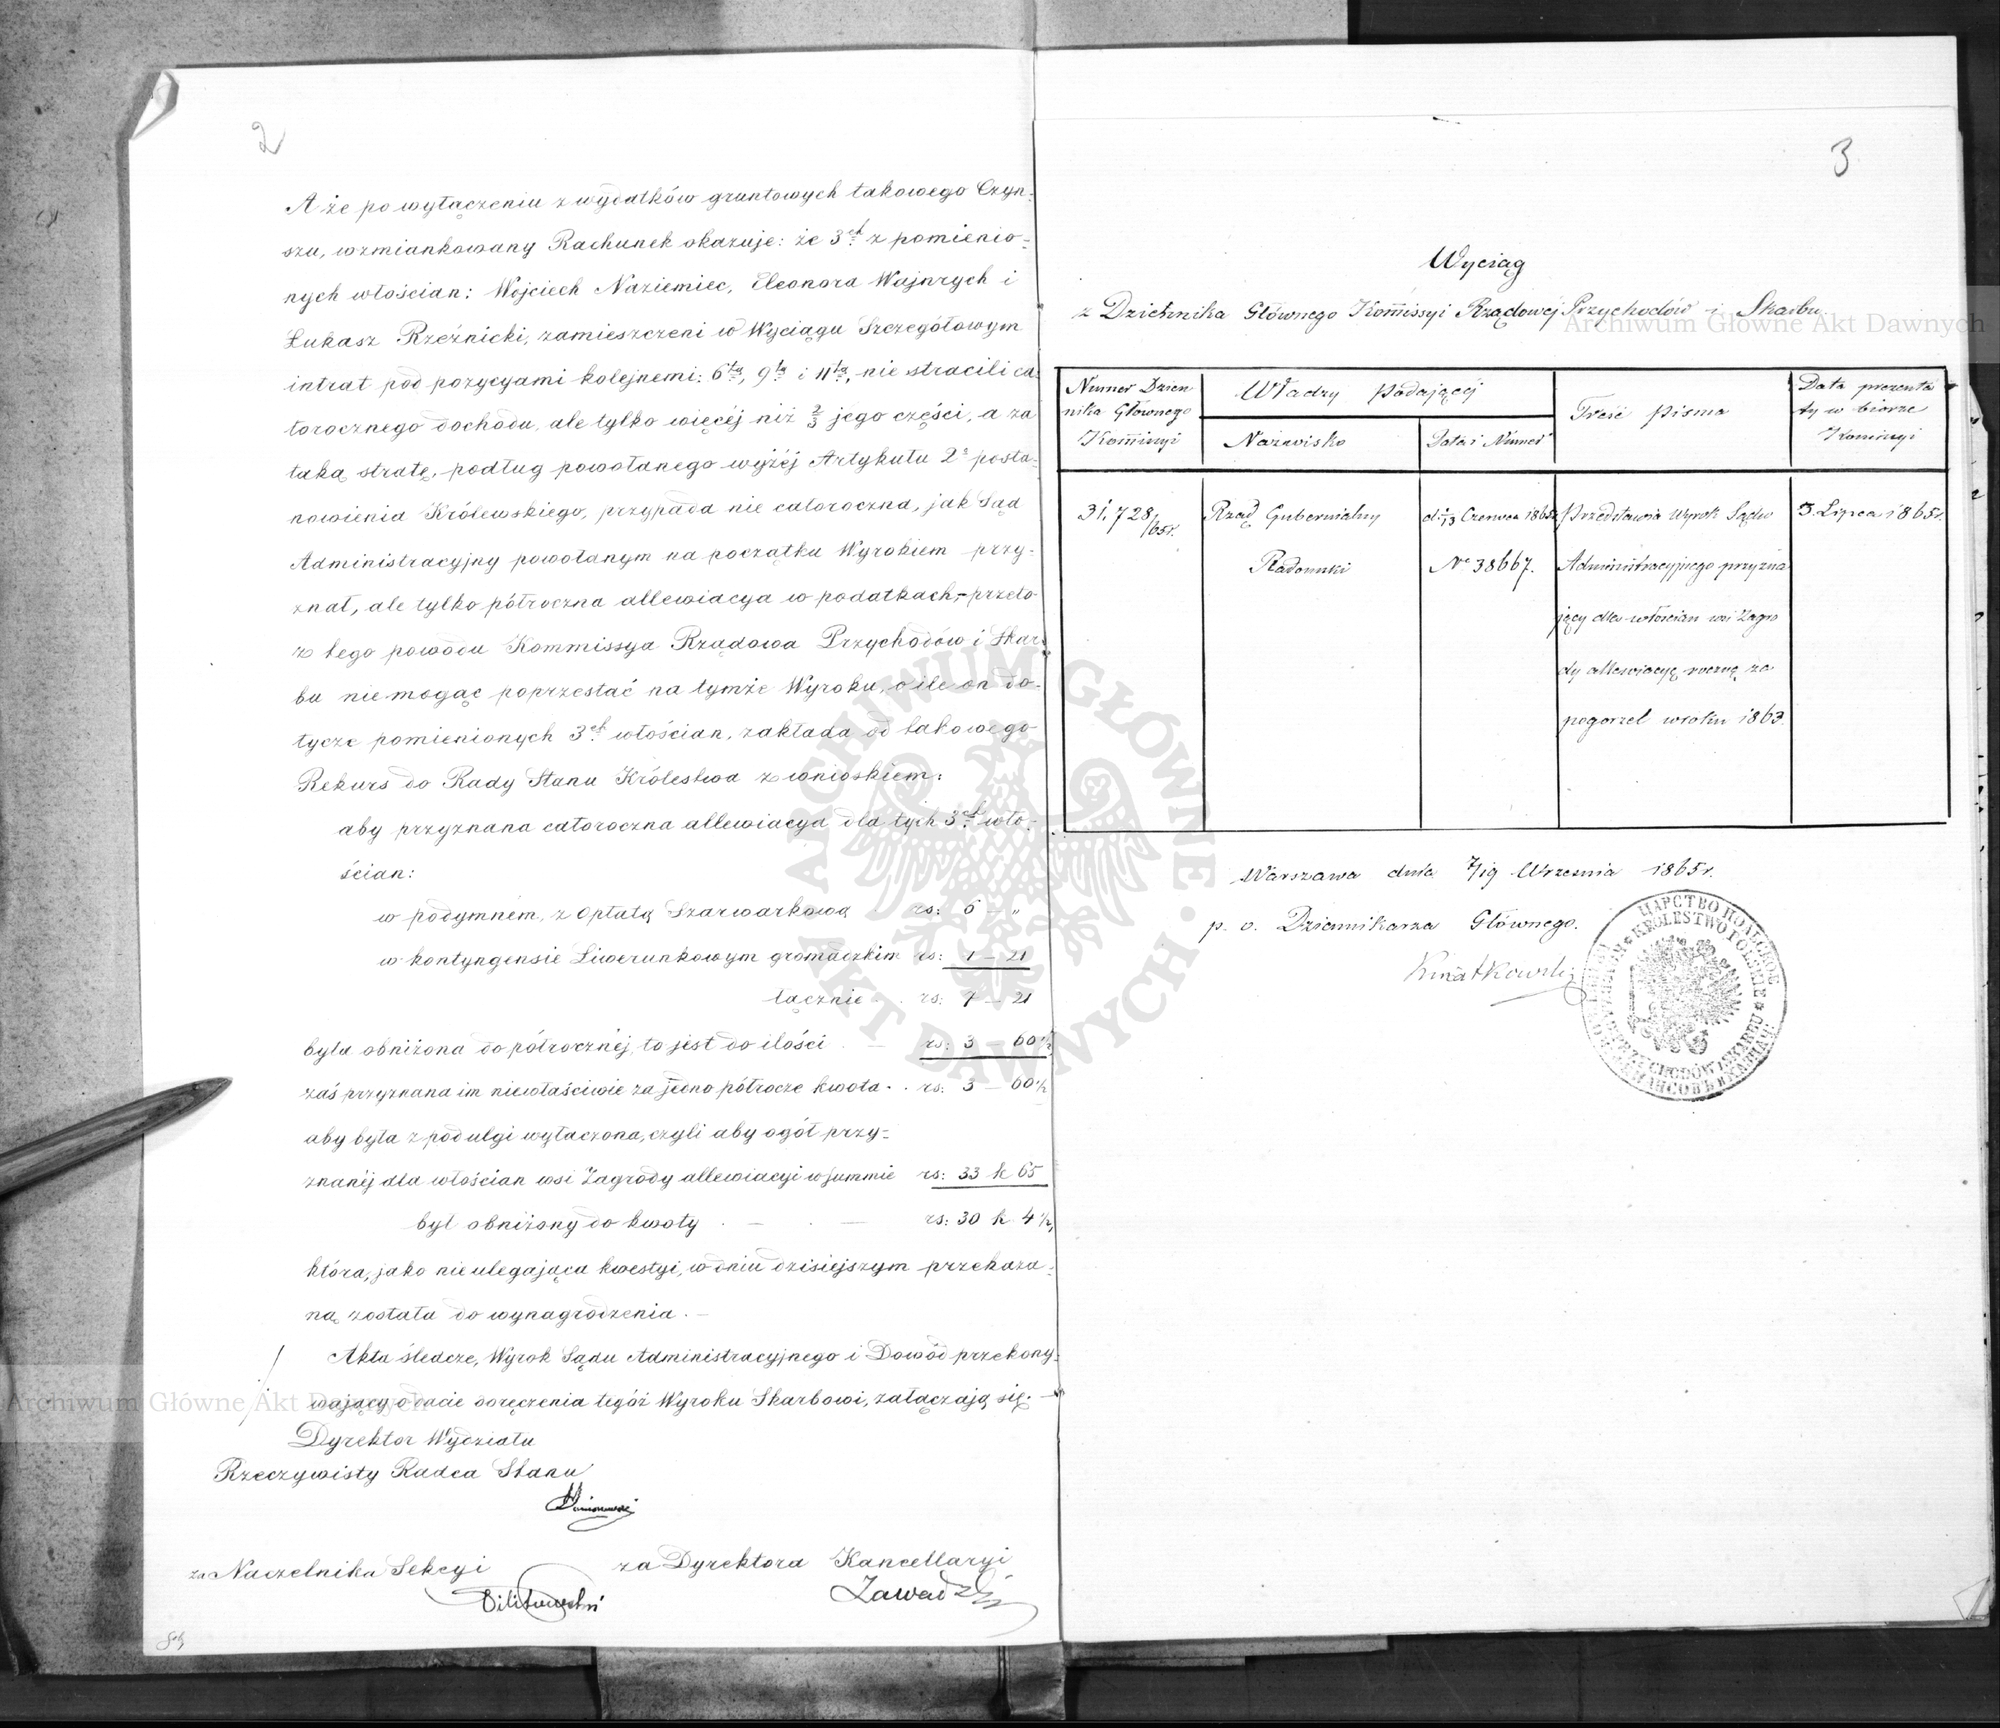 2
A że po wyłączeniu z wydatków gruntowych takowego Czyn-
szu, wzmiankowany Rachunek okazuje: że 3ch z pomienio-
nych włościan: Wojciech Naziemiec, Eleonora Wajnrych i
Łukasz Rzeźnicki, zamieszczeni w Wyciągu Szczegółowym
intrat pod pozycyami kolejnemi: 6tą, 9tą i 11tą, nie stracili ca-
łorocznego dochodu, ale tylko więcéj niż 2/3 jego części, a za
taką stratę, podług powołanego wyżéj Artykułu 2o posta-
nowienia Królewskiego, przypada nie całoroczna, jak Sąd
Administracyjny powołanym na początku Wyrokiem przy-
znał, ale tylko półroczna allewiacya w podatkach, – przeto
z tego powodu Kommissya Rządowa Przychodów i Skar-
bu nie mogąc poprzestać na tymże Wyroku, o ile on do-
tycze pomienionych 3ch włościan, zakłada od takowego
Rekurs do Rady Stanu Królestwa z wnioskiem:
aby przyznana całoroczna allewiacya dla tych 3ch wło-
ścian:
w podymném, z Opłatą Szarwarkową rs: 6 – "
w kontyngensie Liwerunkowym gromadzkim rs: 1 – 21
łącznie . . rs: 7 – 21
była obniżona do półrocznéj, to jest do ilości . – rs: 3 – 60 1/2
zaś przyznana im niewłaściwie za jedno półrocze kwota . . rs: 3 – 60 1/2
aby była z pod ulgi wyłączona, czyli aby ogół przy-
znanéj dla włościan wsi Zagrody allewiacyi w summie rs: 33 k 65
był obniżony do kwoty . – . – rs: 30 k 4 1/2,
która, jako nieulegająca kwestyi, w dniu dzisiejszym przekaza-
ną została do wynagrodzenia. –
Akta śledcze, Wyrok Sądu Administracyjnego i Dowód przekony-
wający o dacie doręczenia tegóż Wyroku Skarbowi, załączają się. –
Dyrektor Wydziału
Rzeczywisty Radca Stanu
za Naczelnika Sekcyi
za Dyrektora Kancellaryi
Zawadzki
3
Wyciąg
z Dziennika Głównego Kommissyi Rządowej Przychodów i Skarbu.
Numer Dzien
nika Głównego
Kommissyi
Władzy Podającéj
Nazwisko
Data i Numer
Treść Pisma
Data prezenta
ty w biorze
Kommissyi
31,728/65r.
Rząd Gubernialny
Radomski
d. 1/13 Czerwca 1865r.
No 38667.
Przedstawia Wyrok Sądu
Administracyjnego przyzna
jący dla włościan wsi Zagro
dy allewiacyę roczną za
pogorzel w roku 1863.
3 Lipca 1865r.
Warszawa dnia 7/19 Września 1865r.
p. o. Dziennikarza Głównego.
Kwiatkowski
ЦАРСТВО ПОЛЬСКОЕ
KRÓLESTWO POLSKIE
ARCHIWUM GŁÓWNE AKT DAWNYCH
Archiwum Główne Akt Dawnych
Archiwum Główne Akt Dawnych